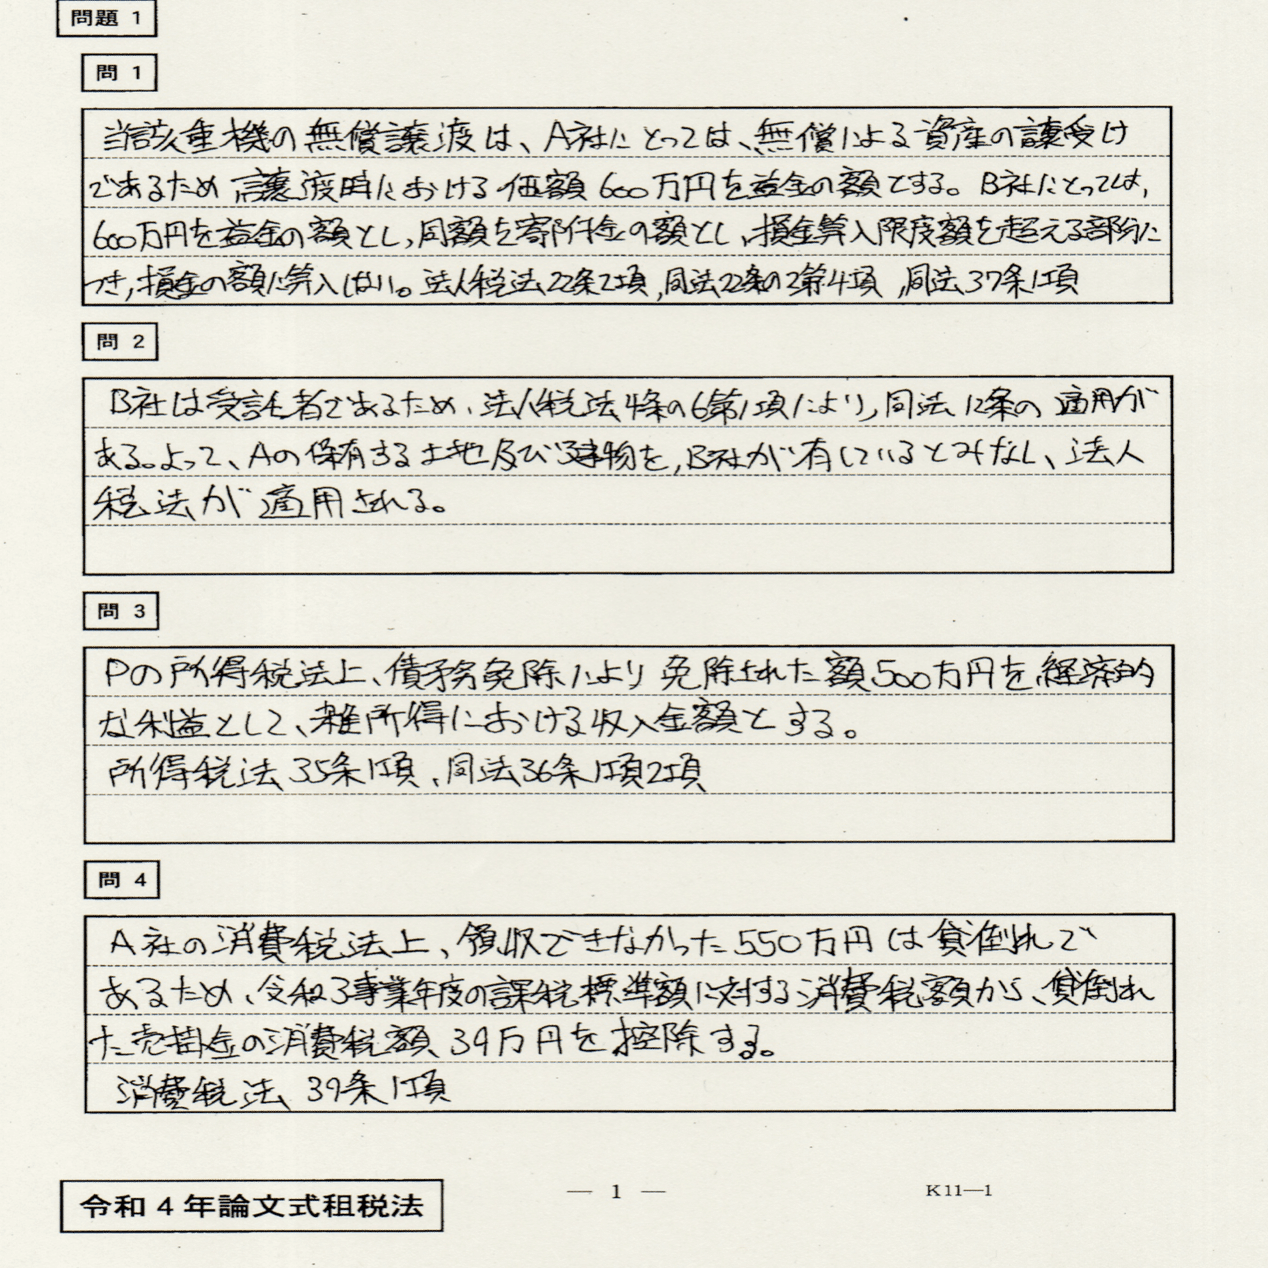 問題 1
問 1
当該重機の無償譲渡は、A社にとっては、無償による資産の譲受け
であるため譲渡時における価額600万円を益金の額とする。B社にとっては、
600万円を益金の額とし、同額を寄附金の額とし、損金算入限度額を超える部分に
つき、損金の額に算入しない。法人税法22条2項、同法22条の2第4項、同法37条1項
問 2
B社は受託者であるため、法人税法4条の6第1項により、同法12条の適用が
ある。よって、Aの保有する土地及び建物を、B社が有しているとみなし、法人
税法が適用される。
問 3
Pの所得税法上、債務免除により免除された額500万円を経済的
な利益として、雑所得における収入金額とする。
所得税法35条1項、同法36条1項2項
問 4
A社の消費税法上、領収できなかった550万円は貸倒れで
あるため、令和3事業年度の課税標準額に対する消費税額から、貸倒れ
た売掛金の消費税額39万円を控除する。
消費税法39条1項
— 1 —
K11—1
令和4年論文式租税法